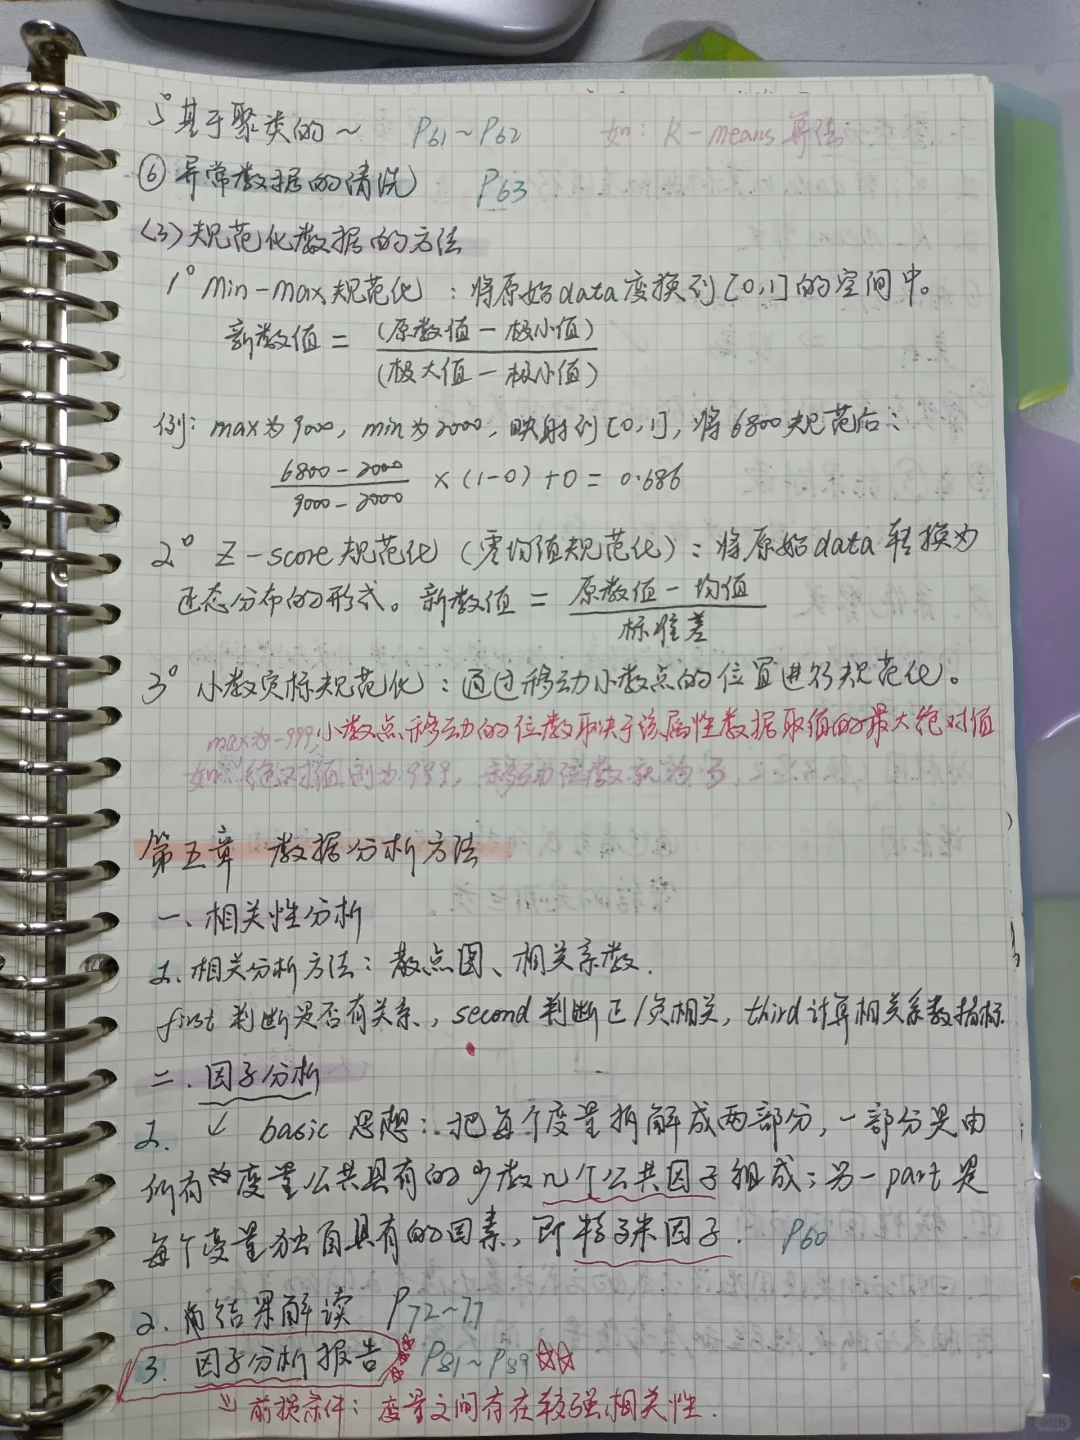 5° 基于聚类的～ P61～P62 如：K-means算法
⑥ 异常数据的清洗 P63
(3) 规范化数据的方法
1° Min-max规范化：将原始data变换到[0,1]的空间中。
新数值 = (原数值 - 极小值)
(极大值 - 极小值)
例：max为9000, min为2000, 映射到[0,1], 将6800规范后：
6800-2000
9000-2000 ×(1-0)+0=0.686
2° Z-score规范化（零均值规范化）：将原始data转换为
正态分布的形式。新数值 = 原数值 - 均值
标准差
3° 小数定标规范化：通过移动小数点的位置进行规范化。
max为-999, 小数点移动的位数取决于该属性数据取值的最大绝对值
如: 绝对值则为999, 移动位数就为3
第五章 数据分析方法
一、相关性分析
1. 相关分析方法：散点图、相关系数.
first判断是否有关系, second判断正/负相关, third计算相关系数指标
二.因子分析
1. ↓ basic思想：把每个变量拆解成两部分, 一部分是由
所有变量公共具有的少数n个公共因子组成；另一part是
每个变量独自具有的因素, 即特殊因子. P60
2. 结果解读 P72～77
3. 因子分析报告 P81～P89 ☆☆
↓ 前提条件：变量之间存在较强相关性.